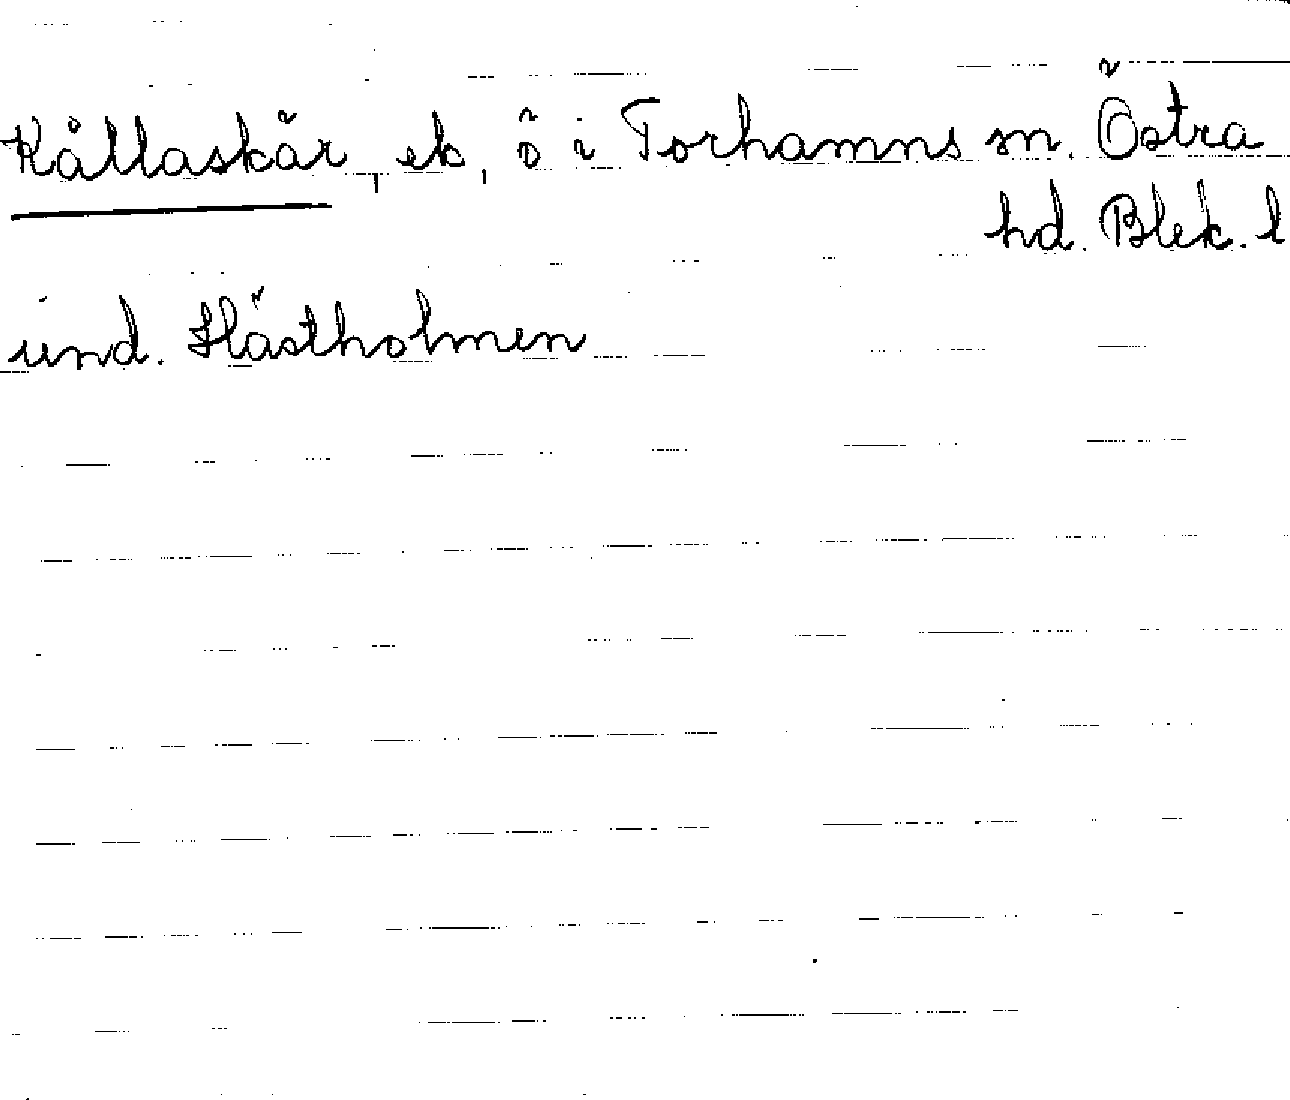 Kållaskär, ek, ö i Torhamns sn. Östra
hd. Blek. l
und. Hästholmen